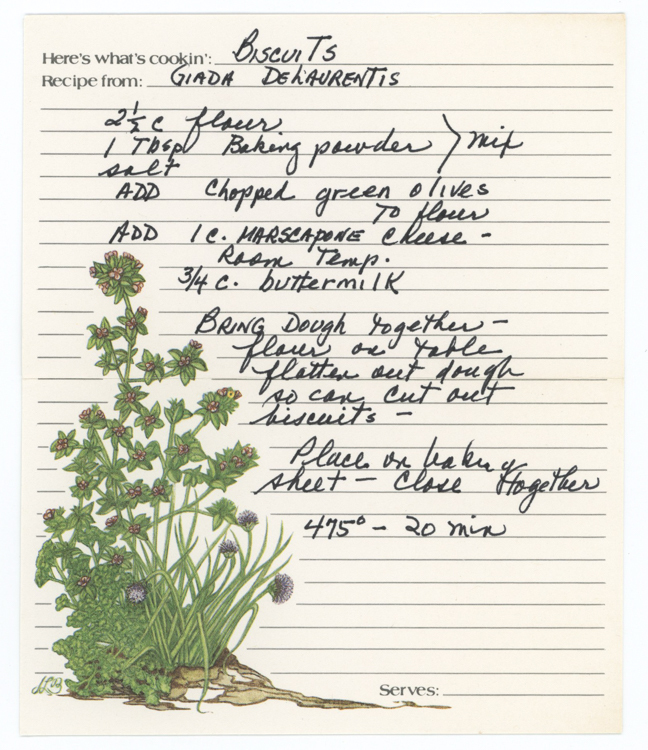 Here's what's cookin': BISCUITS
Recipe from: GIADA DELAURENTIS
2½ c flour
1 Tbsp Baking powder } mix
salt
ADD Chopped green olives
TO flour
ADD 1 c. MARSCAPONE cheese -
Room Temp.
3/4 c. buttermilk
BRING Dough together -
flour on table
flatten out dough
so can cut out
biscuits -
Place on baking
sheet - Close together
475° - 20 min
Serves: